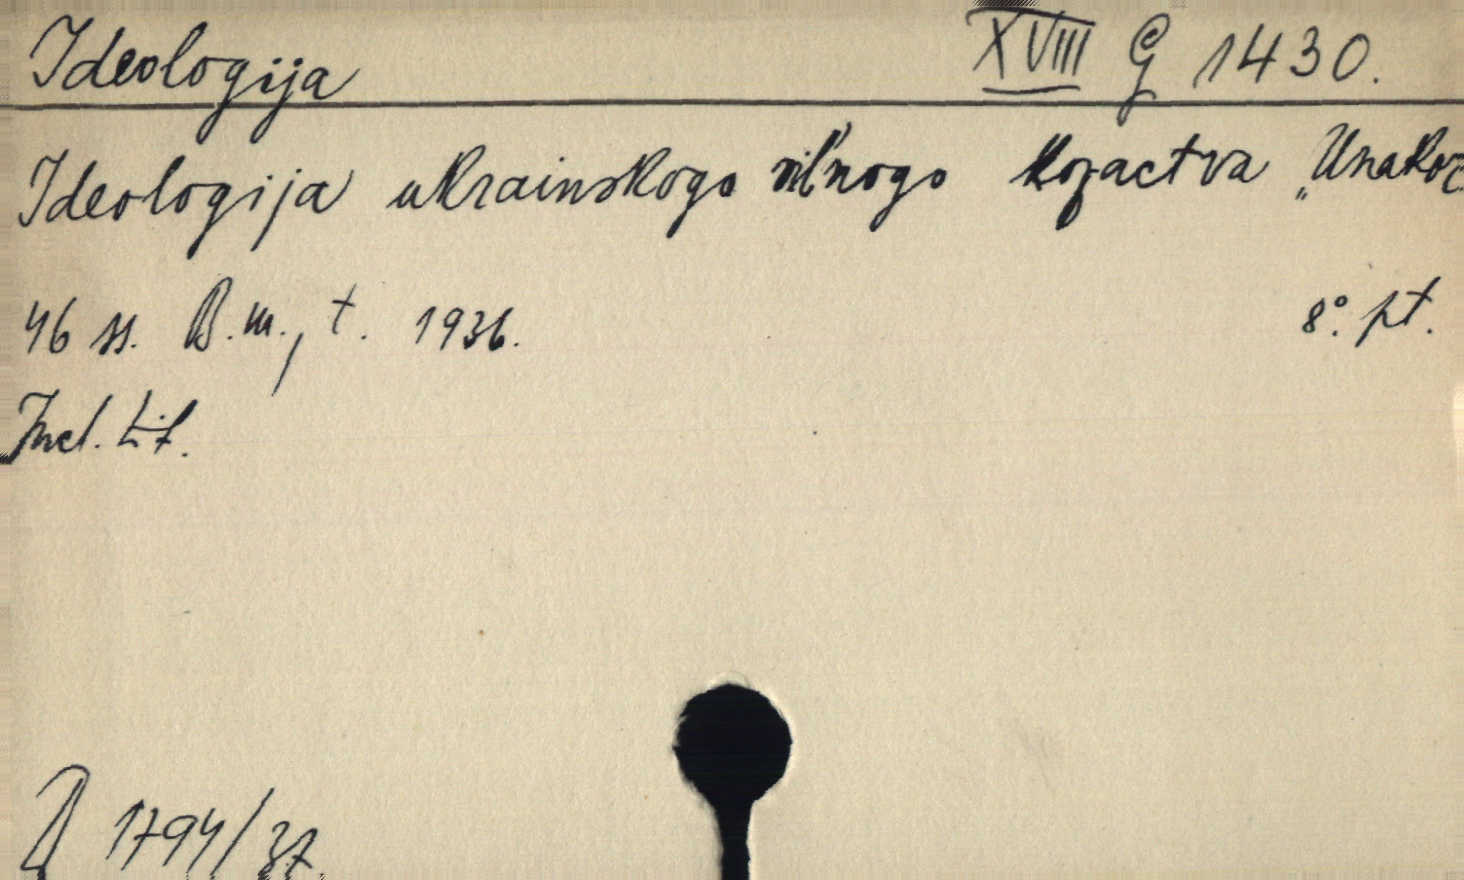 Ideologija XVIII G 1430.
Ideologija ukrainskogo vil'nogo kozactva „Unakoz
46 ss. B.m., t. 1936. 8°. pt.
Incl. Lit.
1794/37.